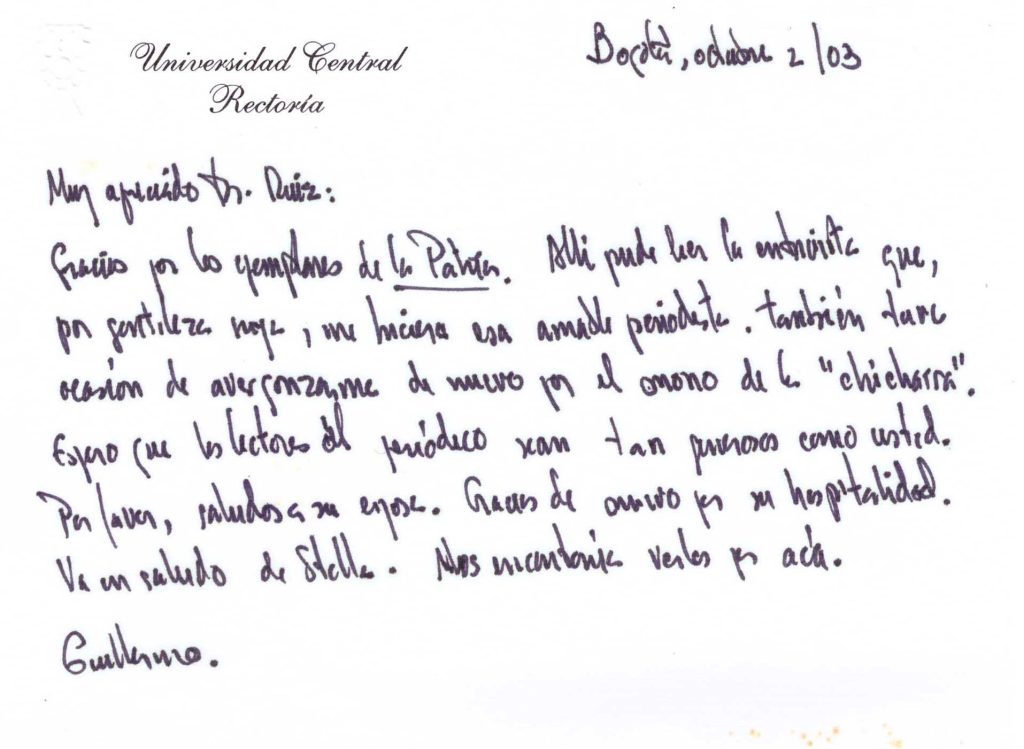 Universidad Central
Rectoría
Bogotá, octubre 2/03
Muy apreciado Dr. Ruiz:
Gracias por los ejemplares de la Patria. Allí pude leer la entrevista que,
por gentileza suya, me hiciera esa amable periodista. También tuve
ocasión de avergonzarme de nuevo por el mono de la "chicharra".
Espero que los lectores del periódico sean tan generosos como usted.
Por favor, saludos a su esposa. Gracias de nuevo por su hospitalidad.
Va un saludo de Stella. Nos encantaría verlos por acá.
Guillermo.